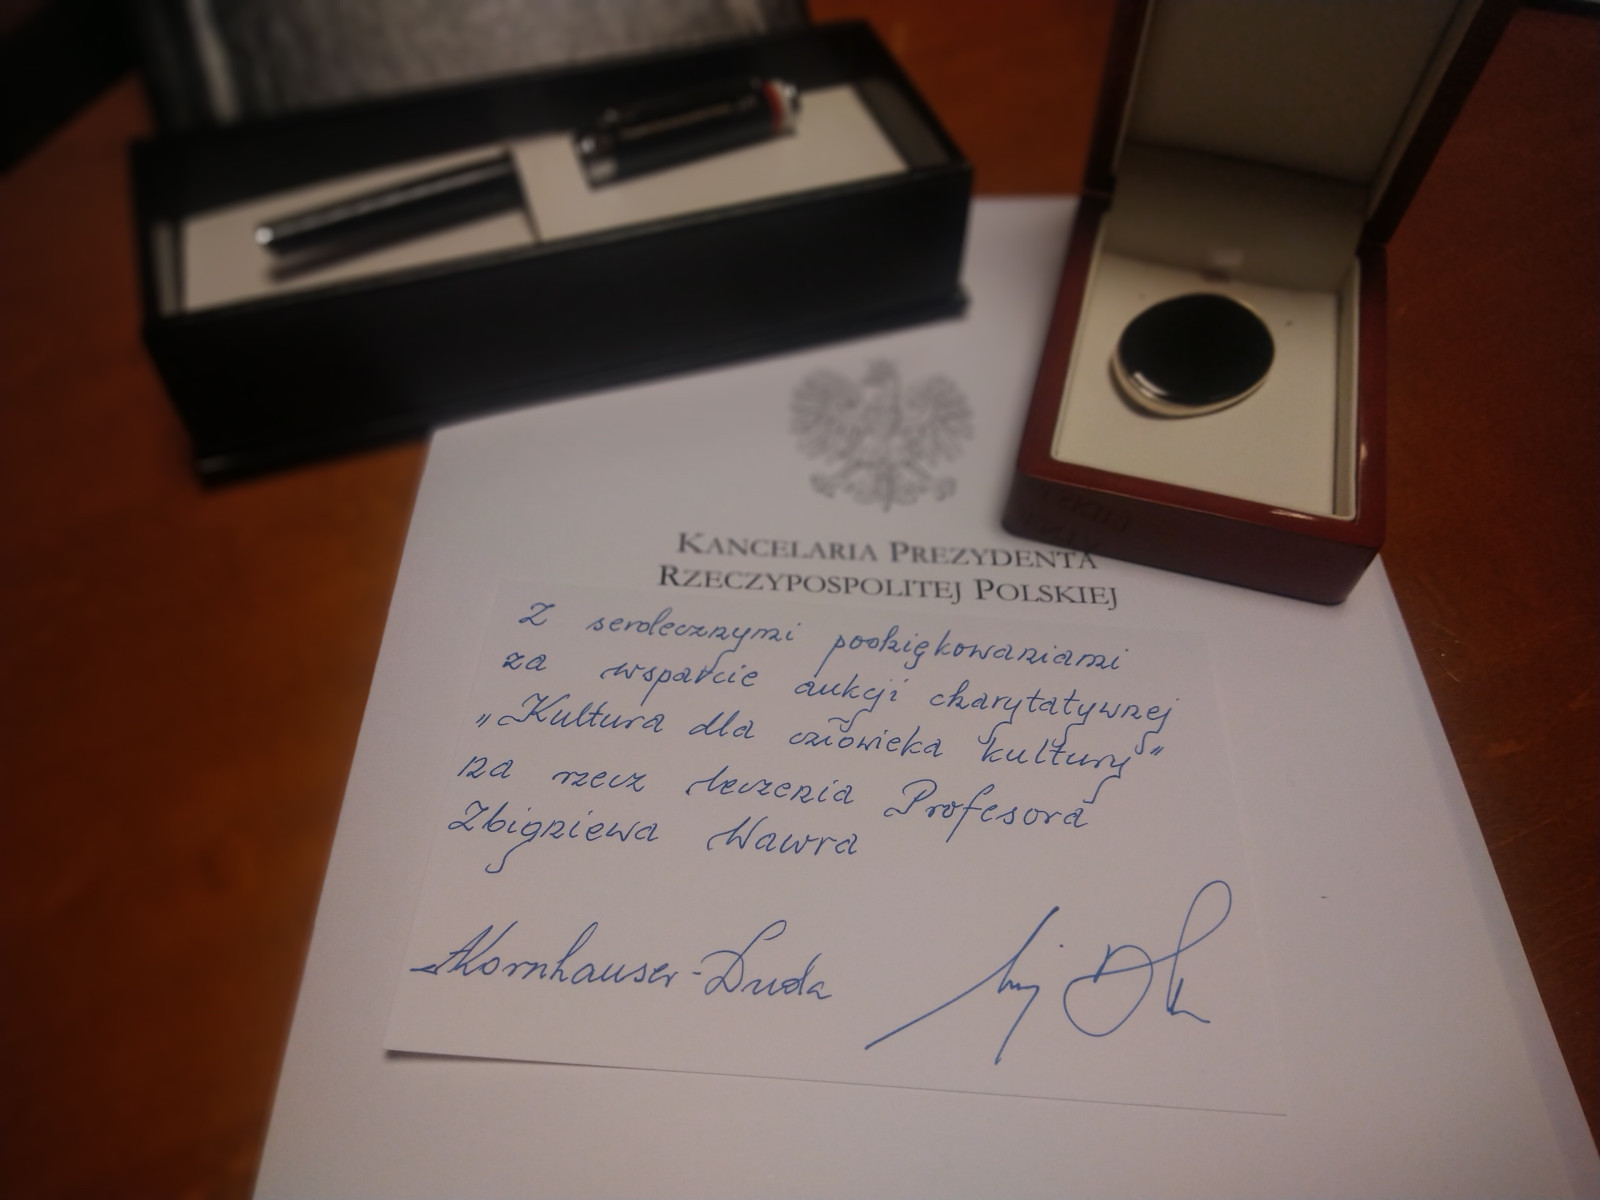 KANCELARIA PREZYDENTA
RZECZYPOSPOLITEJ POLSKIEJ
Z serdecznymi podziękowaniami
za wsparcie aukcji charytatywnej
„Kultura dla człowieka kultury”
na rzecz leczenia Profesora
Zbigniewa Wawra
AKornhauser-Duda